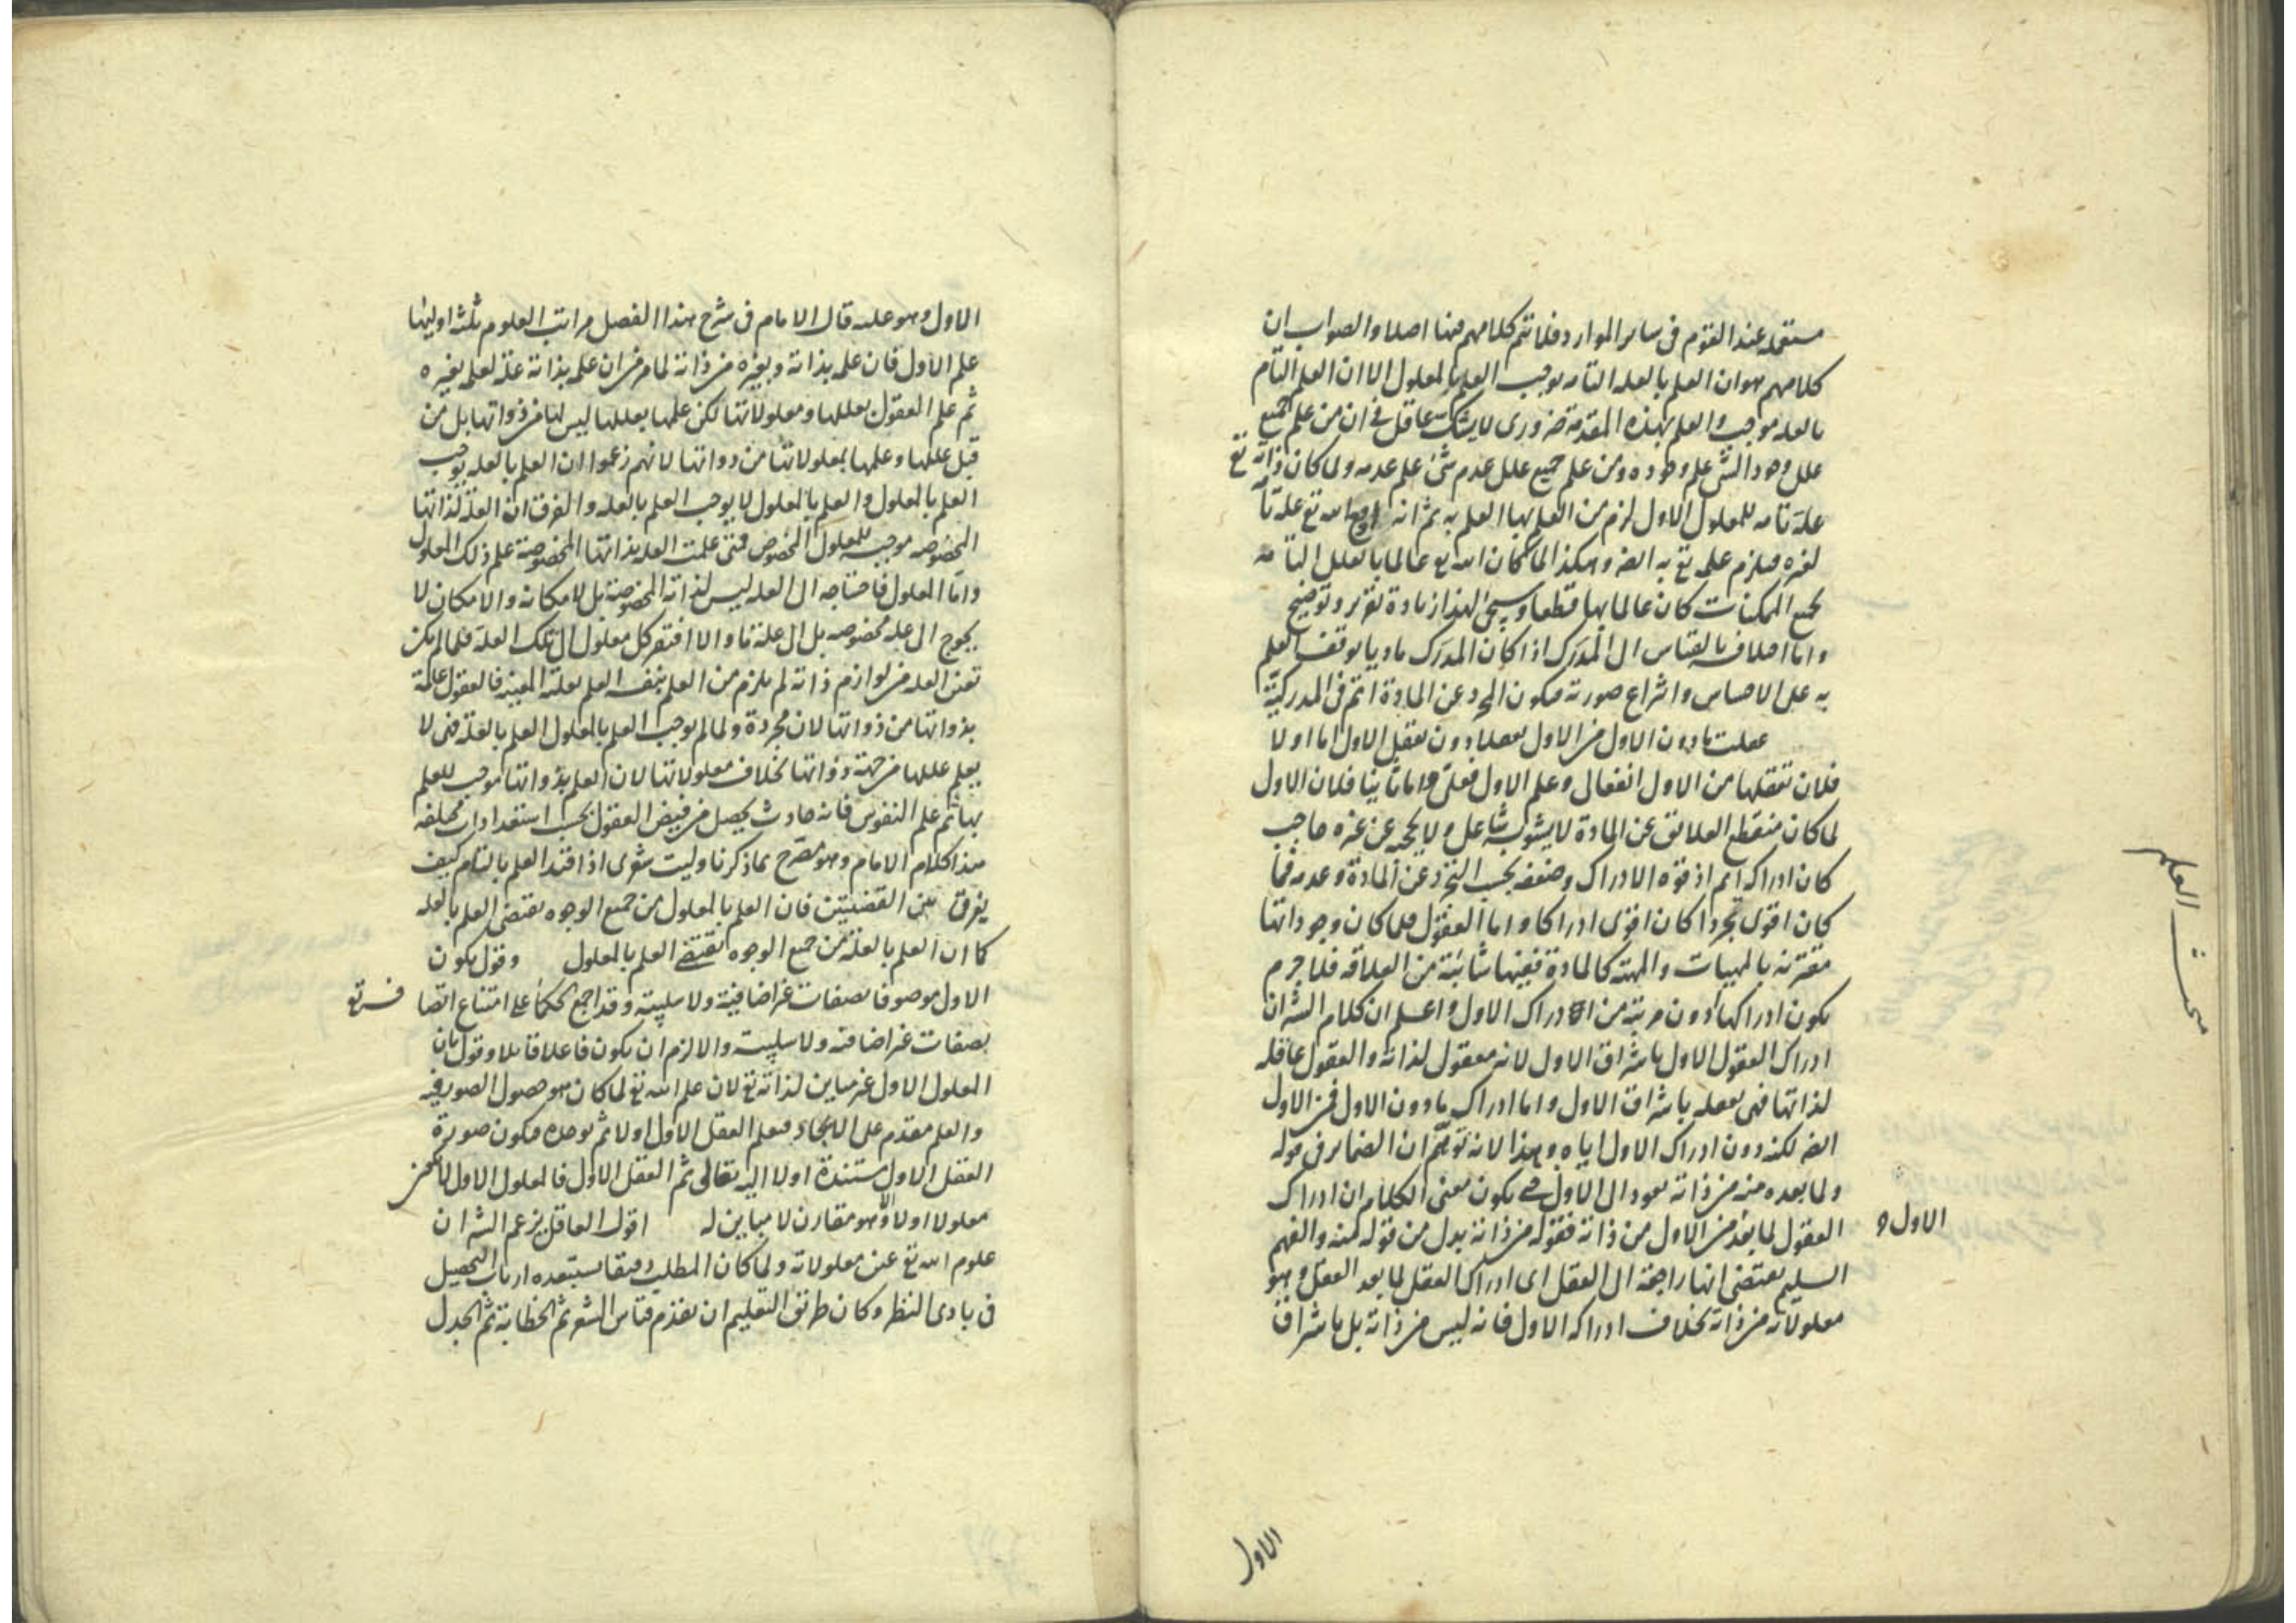 مستعمله عند القوم فى ساير الموارد فلا يتم كلامهم ههنا اصلا والصواب ان
كلامهم هو ان العلم بالعله التامه يوجب العلم بالمعلول الا ان العلم التام
بالعله موجب والعلم بهذه المقدمة ضرورى لا يشك عاقل فى ان من علم جميع
علل وجود الشئ علم وجوده ومن علم جميع علل عدم شئ علم عدمه ولما كان ذاته تع
علة تامه للمعلول الاول لزم من العلم بها العلم به ثم انه مع الله تع علة تامة
لغيره فيلزم علمه تع به ايضا وهكذا لما كان الله تع عالما بالعلل التامه
لجميع الممكنات كان عالما بها قطعا وسيجئ لهذا زيادة تقرير وتوضيح
واما اختلافه بالقياس الى المدرك اذا كان المدرك ماديا يوقف العلم
به على الاحساس وانتزاع صورته فيكون المجرد عن المادة اتم فى المدركية
عقلت ما دون الاول من الاول تعقلا دون تعقل الاول اما اولا
فلان تعقلها من الاول انفعالى وعلم الاول فعلى واما ثانيا فلان الاول
لما كان منقطع العلايق عن المادة لا يشوبه شاغل ولا يحجبه عن غيره حاجب
كان ادراكه اتم اذ قوة الادراك وضعفه بحسب التجرد عن المادة وعدمه فما
كان اقوى تجردا كان اقوى ادراكا واما العقول فلما كان وجوداتها
مقترنه بالمهيات والمهية كالمادة ففيها شائبة من العلاقه فلا جرم
يكون ادراكها دون مرتبة من ادراك الاول واعلم ان كلام الش ان
ادراك العقول الاول باشراق الاول لانه معقول لذاته والعقول عاقله
لذاتها فهى تعقله باشراق الاول واما ادراك ما دون الاول فمن الاول
ايضا لكنه دون ادراك الاول اياه وهذا لانه توهم ان الضماير فى قوله
ولما بعده منه من ذاته تعود الى الاول حتى يكون معنى الكلام ان ادراك
العقول لما بعد من الاول من ذاته فقوله من ذاته بدل من قوله منه والفهم
الاول و
السليم يقتضى انها راجعة الى العقل اى ادراك العقل لما بعد العقل وهو
معلولاته من ذاته بخلاف ادراكه الاول فانه ليس من ذاته بل باشراق
مبحث العلم
الاول
الاول وهو علمه قال الامام فى شرح هذا الفصل مراتب العلوم ثلثة اوليها
علم الاول فان علمه بذاته وبغيره من ذاته لما مر من ان علمه بذاته علة لعلمه بغيره
ثم علم العقول بعللها ومعلولاتها لكن علمها بعللها ليس لها من ذواتها بل من
قبل عللها وعلمها بمعلولاتها من ذواتها لانهم زعموا ان العلم بالعله يوجب
العلم بالمعلول والعلم بالمعلول لا يوجب العلم بالعله والفرق ان العلة لذاتها
المخصوصه موجبه للمعلول المخصوص فمتى علمت العله بذاتها المخصوصة علم ذلك المعلول
واما المعلول فاحتياجه الى العله ليس لذاته المخصوصة بل لامكانه والامكان لا
يحوج الى علة مخصوصه بل الى علة ما والا افتقر كل معلول الى تلك العلة فلما لم يكن
تعين العله من لوازم ذاته لم يلزم من العلم بنفسه العلم بعلته المعينه فالعقول عالمة
بذواتها من ذواتها لان مجردة ولما لم يوجب العلم بالمعلول العلم بالعلة فهى لا
يعلم عللها من جهة ذواتها بخلاف معلولاتها لان العلم بذواتها موجب للعلم
بها ثم علم النفوس فانه حادث يحصل من فيض العقول بحسب استعدادات مختلفه
هذا كلام الامام وهو مصرح بما ذكرنا وليت شعرى اذا قيد العلم بالتام كيف
يفرق بين القضيتين فان العلم بالمعلول من جميع الوجوه يقتضى العلم بالعله
كما ان العلم بالعلة من جميع الوجوه يقتضى العلم بالمعلول وقول بكون
الاول موصوفا بصفات غير اضافية ولا سلبية وقد اجمع الحكماء على امتناع اتصافه تع
بصفات غير اضافيه ولا سلبية والا لزم ان يكون فاعلا قابلا وقول بان
المعلول الاول غير مباين لذاته تع لان علم الله تع لما كان هو حصول الصور فيه
والعلم مقدم على الايجاد فيعلم العقل الاول اولا ثم يوجده فيكون صورة
العقل الاول مستندة اولا اليه تعالى ثم العقل الاول فالمعلول الاول لا يكون
معلولا اولا والا وهو مقارن لا مباين له اقول العاقل يزعم الش ان
علوم الله تع عين معلولاته ولما كان المطلب دقيقا يستبعده ارباب التحصيل
فى بادى النظر وكان طريق التعليم ان يقدم قياس الشعر ثم الخطابة ثم الجدل